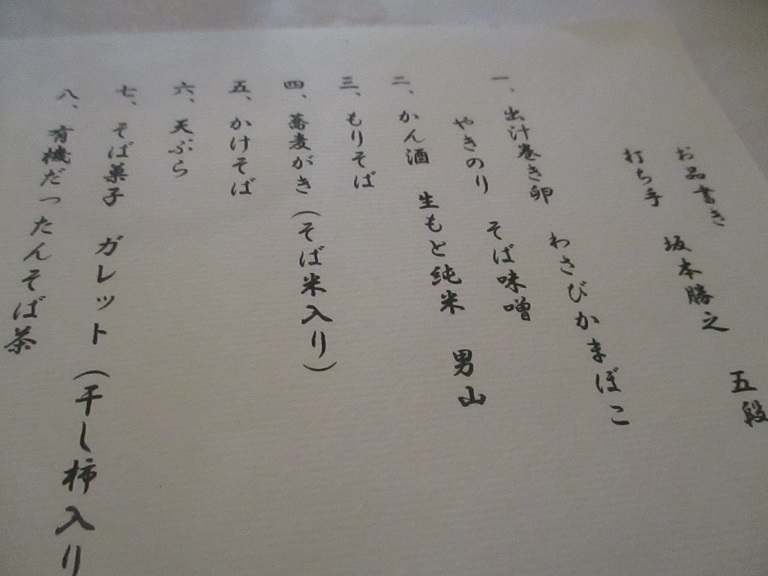 お品書き
打ち手 坂本勝之 五段
一、出汁巻き卵 わさびかまぼこ
やきのり そば味噌
二、かん酒 生もと純米 男山
三、もりそば
四、蕎麦がき(そば米入り)
五、かけそば
六、天ぷら
七、そば菓子 ガレット(干し柿入り
八、有機だったんそば茶